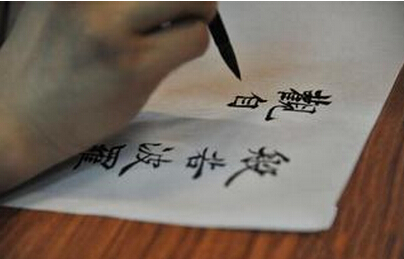 般若波羅
觀自